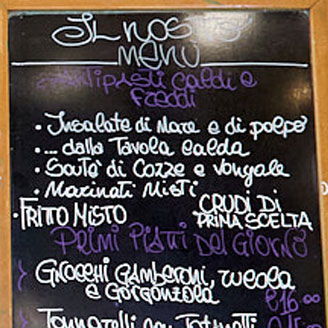 IL NOSTRO
MENU
ANTIPASTI CALDI e
FREDDI
• Insalate di Mare e di polpo
• ... dalla Tavola Calda
• Sautè di Cozze e vongole
• Marinati Misti
• FRITTO MISTO
CRUDI DI
PRIMA SCELTA
PRIMI PIATTI Del GIORNO
GNOCCHI GAMBERONI, RUCOLA
e GORGONZOLA
€16.00
Tonnarelli con